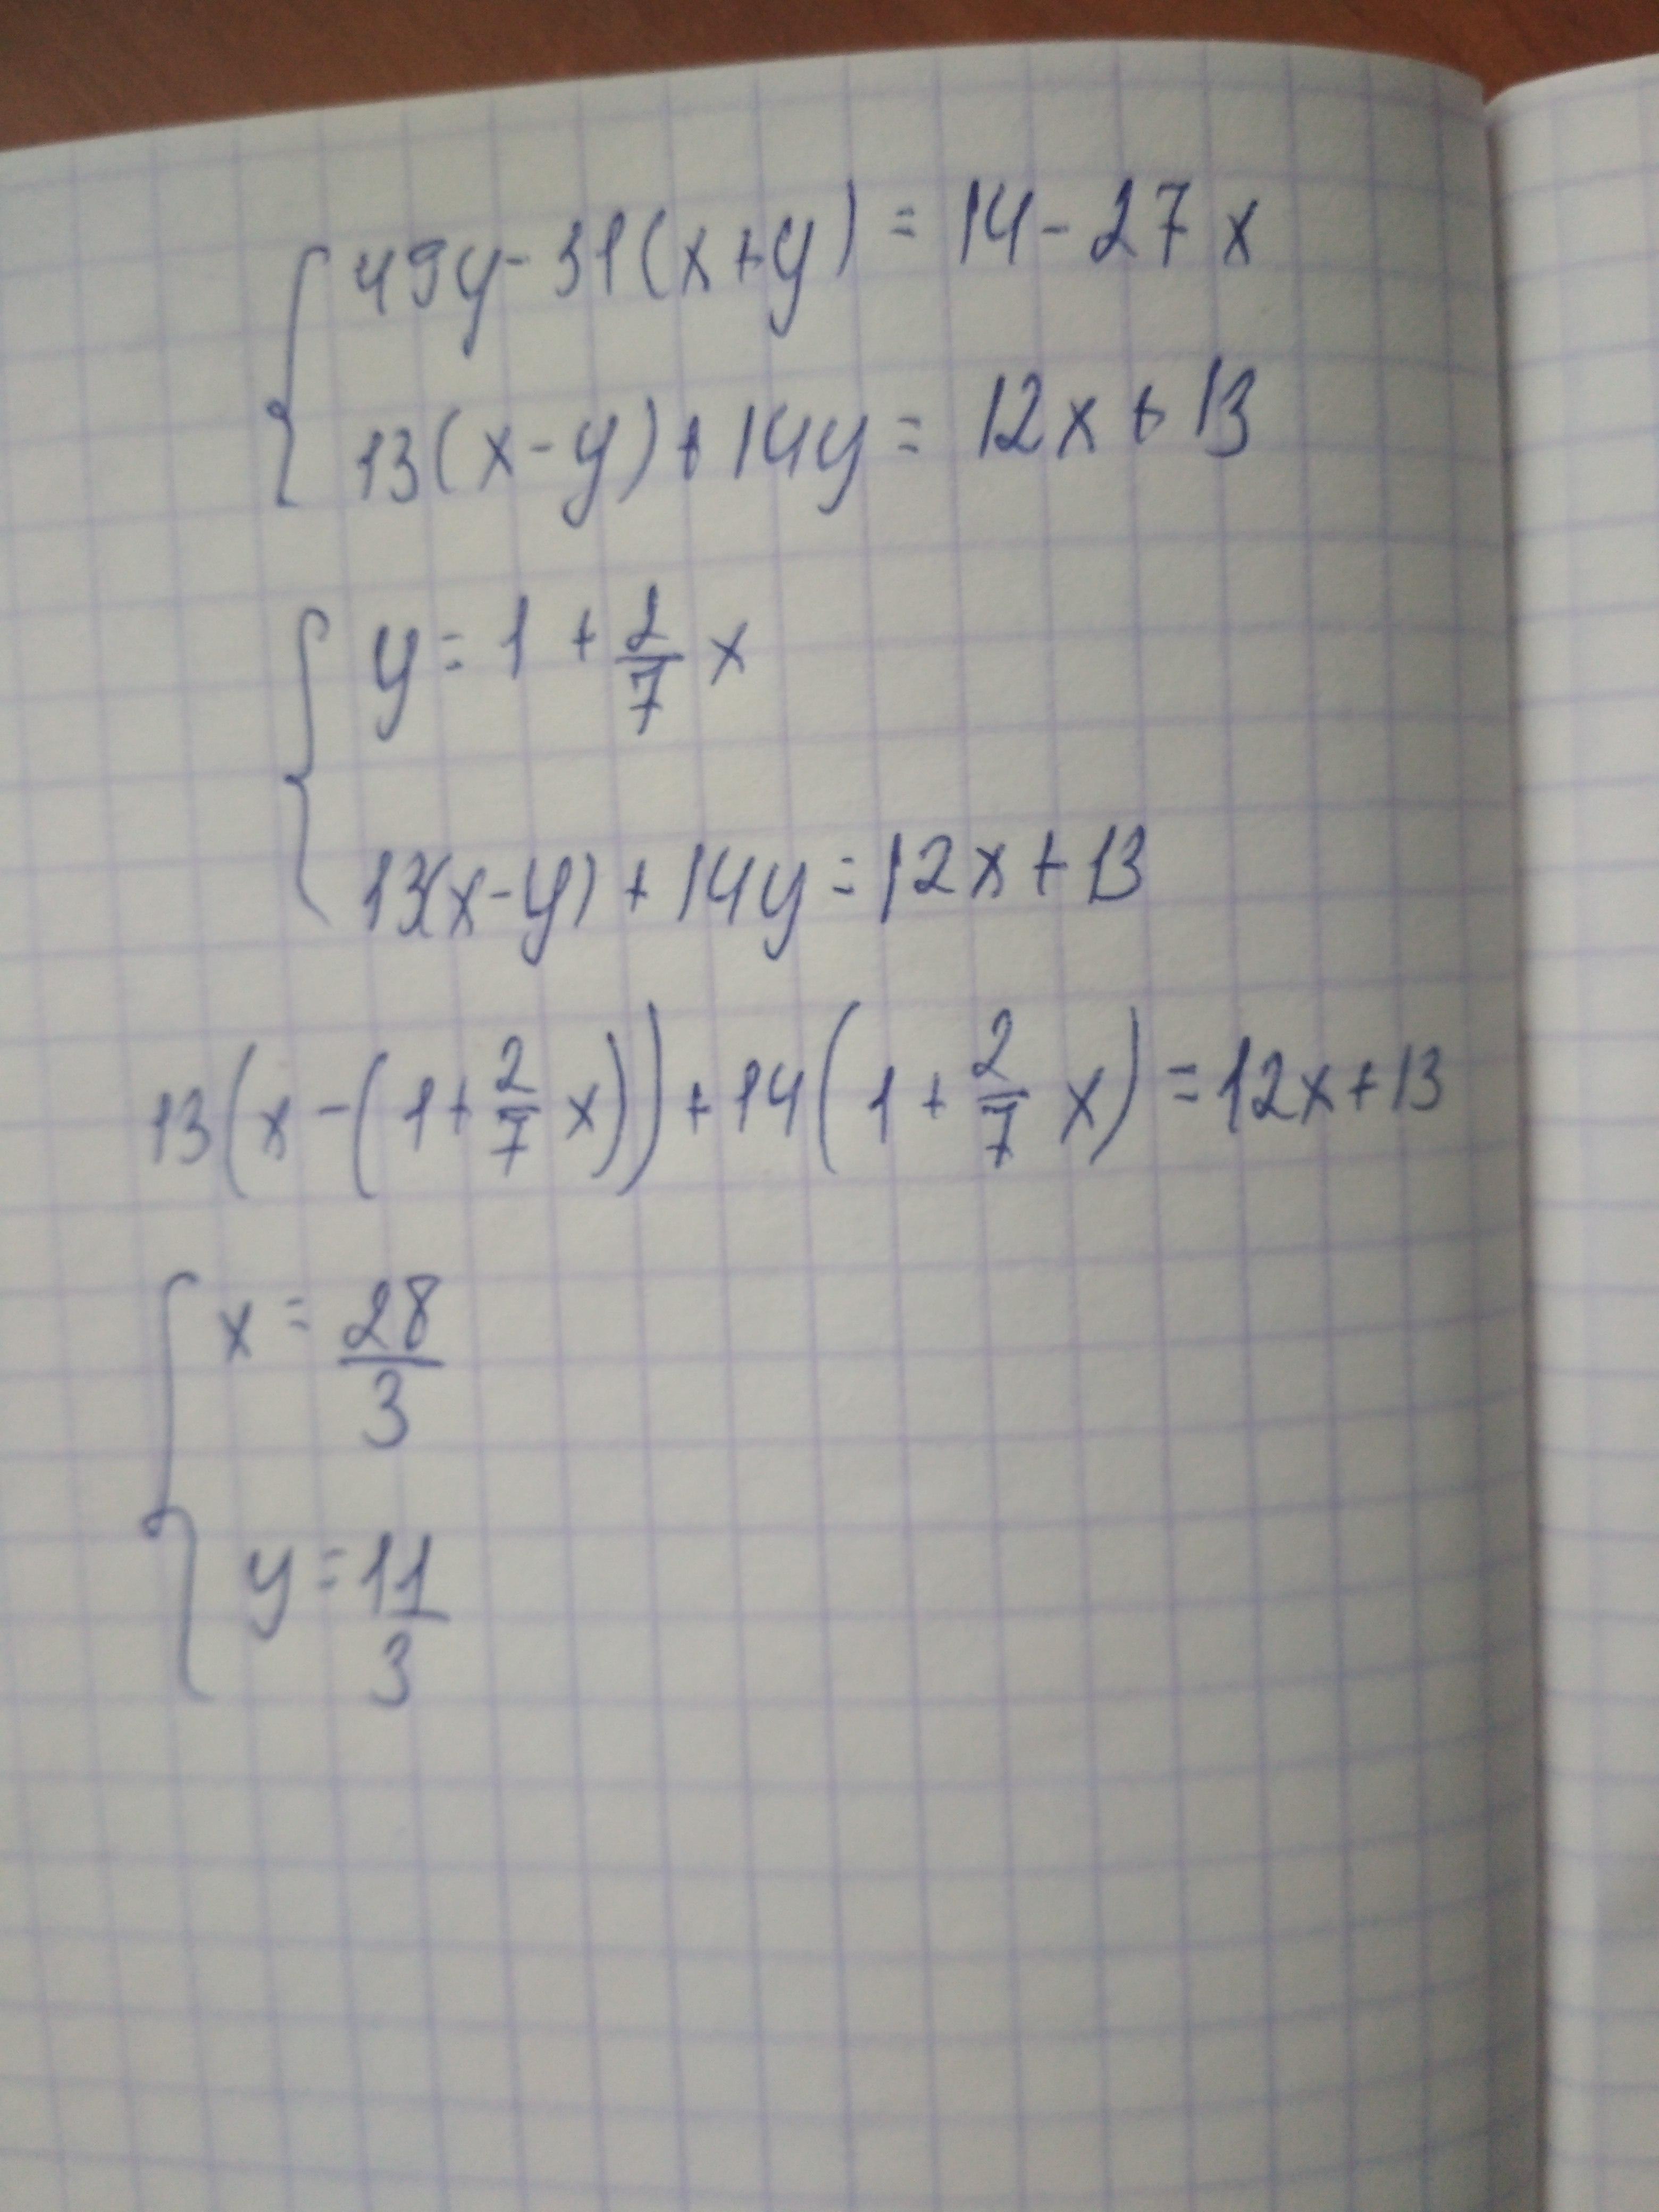 { 49y - 31(x+y) = 14 - 27x
13(x-y) + 14y = 12x + 13
{ y = 1 + 2/7 x
13(x-y) + 14y = 12x + 13
13(x-(1+2/7 x)) + 14(1+2/7 x) = 12x + 13
{ x = 28/3
y = 11/3